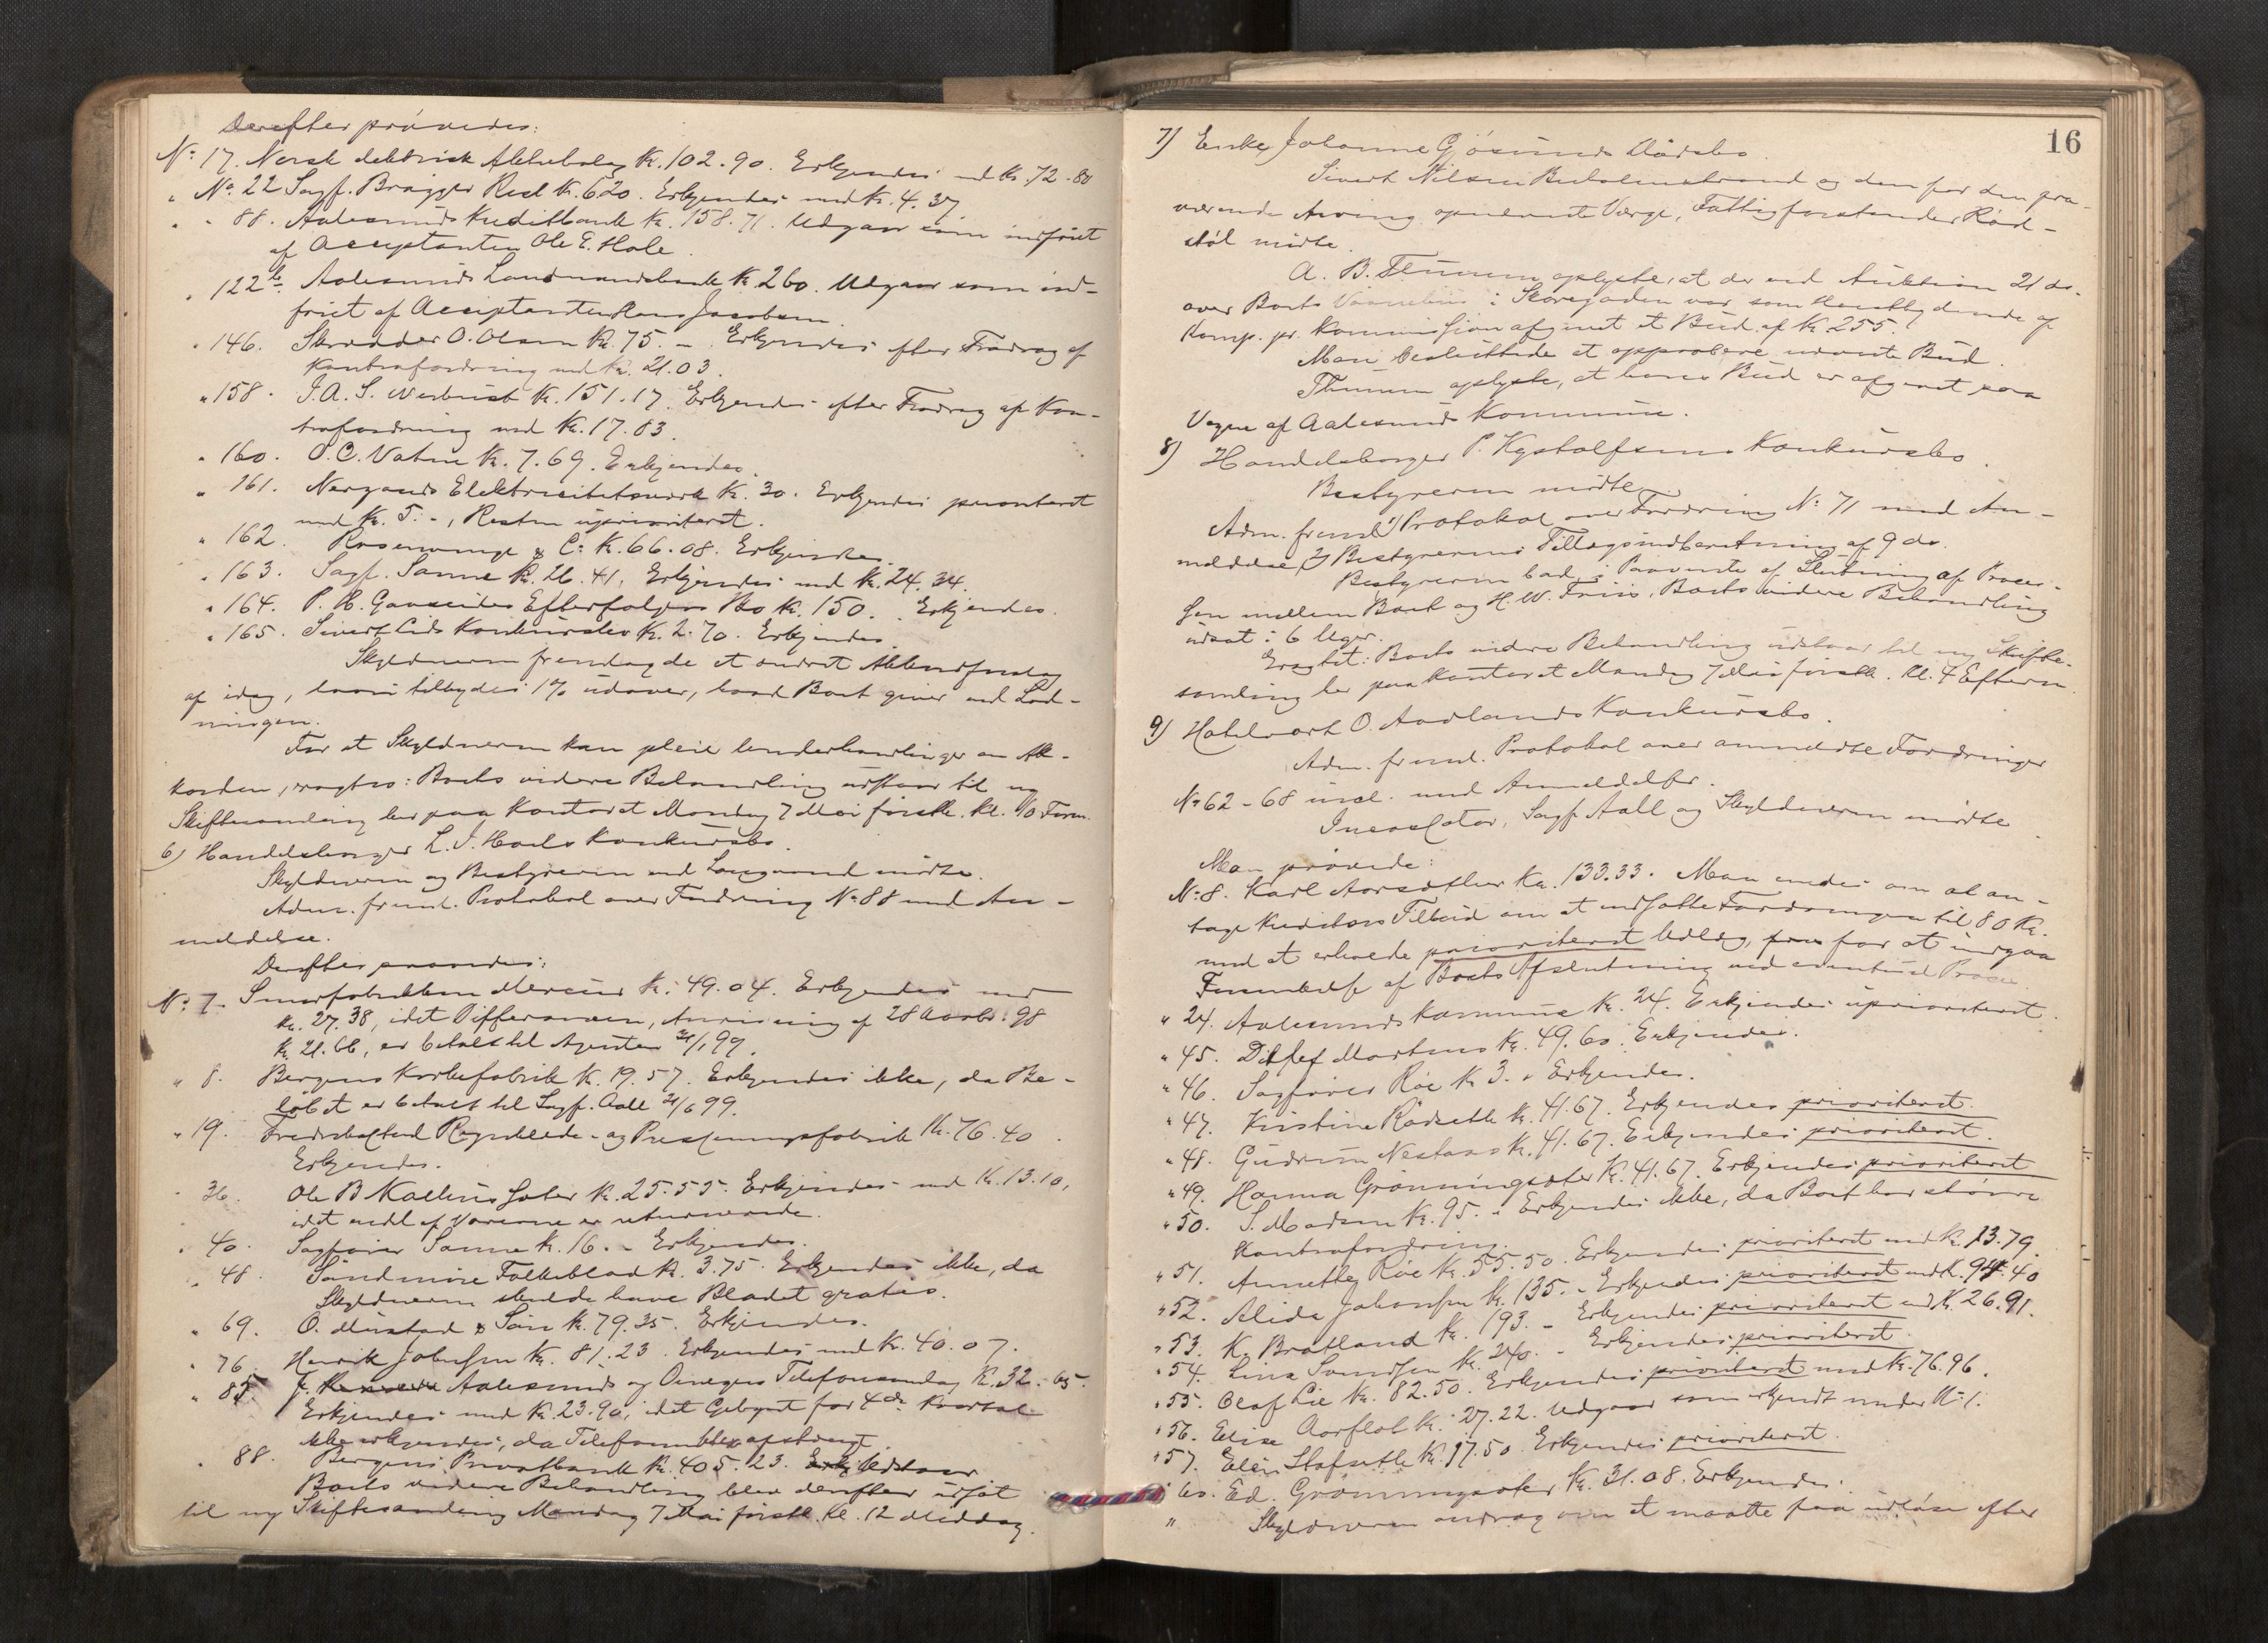 Derefter prövedes:
No 17. Norsk elektrisk Aktiebolag Kr. 102.90. Erkjendes med Kr. 72.80
" No 22 Sagf. Brügger Kr. 620. Erkjendes med Kr. 4.37
" 88. Aalesunds Kreditbank Kr. 158.71. Udgaar som indfriet
af Acceptanten Ole E. Hole.
" 122 b Aalesunds Landmandsbank Kr. 260. Udgaar som ind-
friet af Acceptanten Hans Jacobsen.
" 146. Skrædder O. Olsen Kr. 75. - Erkjendes efter Fradrag af
Kontrafordring med Kr. 21.03.
" 158. J. A. S. Kr. 151.17. Erkjendes efter Fradrag af Kon-
trafordring med Kr. 17.83.
" 160. O. C. Vatne Kr. 7.69. Erkjendes.
" 161. Elektricitetsværk Kr. 30. Erkjendes prioriteret
med Kr. 5. -, Resten uprioriteret.
" 162. & Co Kr. 66.08. Erkjendes.
" 163. Sagf. Sanne Kr. 26.41. Erkjendes med Kr. 24.34.
" 164. P. H. Efterfølgers Bo Kr. 150. Erkjendes.
" 165. Sivert Lids Konkursbo Kr. 2.70. Erkjendes.
Skyldneren fremlagde et ændret Akkordforslag
af idag, hvori tilbydes 1% udover, hvad Boet giver ved Lod-
ningen.
For at Skyldneren kan pleie Underhandlinger om Ak-
korden, eragtes: Boets videre Behandling udstaar til ny
Skiftesamling her paa Kontoret Mandag 7 Mai förstk. Kl. 10 Form.
6) Handelsborger L. J. Konkursbo.
Skyldneren og Bestyreren ved mödte.
Adm. freml. Protokol over Fordring No 88 med An-
meldelse.
Derefter prövedes:
No 7. Smörfabrikken Mercur Kr. 49.04. Erkjendes med
Kr. 27.38, idet Differansen, Anvisning af 28 98
Kr. 21.66, er betalt til Agenten 99.
" 8. Bergens Korkefabrik Kr. 19.57. Erkjendes ikke, da Be-
löbet er betalt til Sagf. Aall 21/6 99.
" 19. Fredrikstad og Presenningsfabrik Kr. 76.40.
Erkjendes.
" 36. Ole B Kr. 25.55. Erkjendes med Kr. 13.10,
idet endel af Varerne er returnerede.
" 40. Sagförer Sanne Kr. 16. - Erkjendes.
" 48. Söndmöre Folkeblad Kr. 3.75. Erkjendes ikke, da
Skyldneren skulde have Bladet gratis.
" 69. O. Mustad & Sön Kr. 79.35. Erkjendes.
" 76. Henrik Johnsen Kr. 81.23. Erkjendes med Kr. 40.07.
" 85 Aalesunds og Omegns Telefonanlæg Kr. 32.65.
Erkjendes med Kr. 23.90, idet Gebyret for 4de Kvartal
ikke erkjendes, da Telefonen blev afstængt.
" 88. Bergens Privatbank Kr. 405.23. Udstaar
Boets videre Behandling blev derefter udsat
til ny Skiftesamling Mandag 7 Mai förstk. Kl. 12 Middag.
16
7) Enke Johanne Gjösunds Dödsbo.
Sivert Nilsen og den for den fra-
værende Arving opnævnte Værge, Fattigforstander Röd-
stöl mödte.
A. B. Thunem oplyste, at der ved Auktion 21 ds.
over Boets i Storegaden var som Høistbydende af
Komp. pr. Kommission afgivet et Bud af Kr. 255.
Man besluttede at approbere nævnte Bud.
Thunem oplyste, at hans Bud er afgivet paa
Vegne af Aalesunds Kommune.
8) Handelsborger P. Konkursbo.
Bestyreren mödte.
Adm. freml. 1) Protokol over Fordring No 71 med An-
meldelse, 2) Bestyrerens Tillægsindberetning af 9 ds.
Bestyreren bad, i Paavente af Slutning af Proces-
sen mellem Boet og H. W. Friis, Boets videre Behandling
udsat i 6 Uger.
Eragtet: Boets videre Behandling udstaar til ny Skifte-
samling her paa Kontoret Mandag 7 Mai förstk. Kl. 4 Efterm.
9) Hotelvært O. Aadlands Konkursbo.
Adm. freml. Protokol over anmeldte Fordringer
No 62-68 incl. med Anmeldelser.
Incassator, Sagf. Aall og Skyldneren mödte.
Man prövede:
No 8. Karl Aarsæther Kr. 133.33. Man enedes om at an-
tage Kreditors Tilbud om at nedsætte Fordringen til 80 Kr.
mod at erholde prioriteret Udlæg, for at undgaa
af Boets Afslutning ved eventuel Proces.
" 24. Aalesunds Kommune Kr. 24. Erkjendes uprioriteret.
" 45. Ditlef Martens Kr. 49.60. Erkjendes.
" 46. Sagförer Röe Kr. 3. - Erkjendes.
" 47. Kristine Rödsetth Kr. 41.67. Erkjendes prioriteret.
" 48. Gudrun Nestaas Kr. 41.67. Erkjendes prioriteret.
" 49. Hanna Grönningsæter Kr. 41.67. Erkjendes prioriteret
" 50. S. Madsen Kr. 95. - Erkjendes ikke, da Boet har större
Kontrafordring.
" 51. Annette Röe Kr. 55.50. Erkjendes prioriteret med Kr. 13.79.
" 52. Alida Johansen Kr. 135. - Erkjendes prioriteret med Kr. 94.40
" 53. K. Bratland Kr. 193. - Erkjendes prioriteret med Kr. 26.91.
" 54. Lina Kr. 240. - Erkjendes prioriteret.
" 55. Olaf Lie Kr. 82.50. Erkjendes prioriteret med Kr. 76.96.
" 56. Elise Aarflot Kr. 27.22. Udgaar som erkjendt under No 1.
" 57. Elen Stafseth Kr. 17.50. Erkjendes prioriteret.
" 60. Ed. Grönningsæter Kr. 31.08. Erkjendes.
" Skyldneren androg om at maatte faa udlöse efter